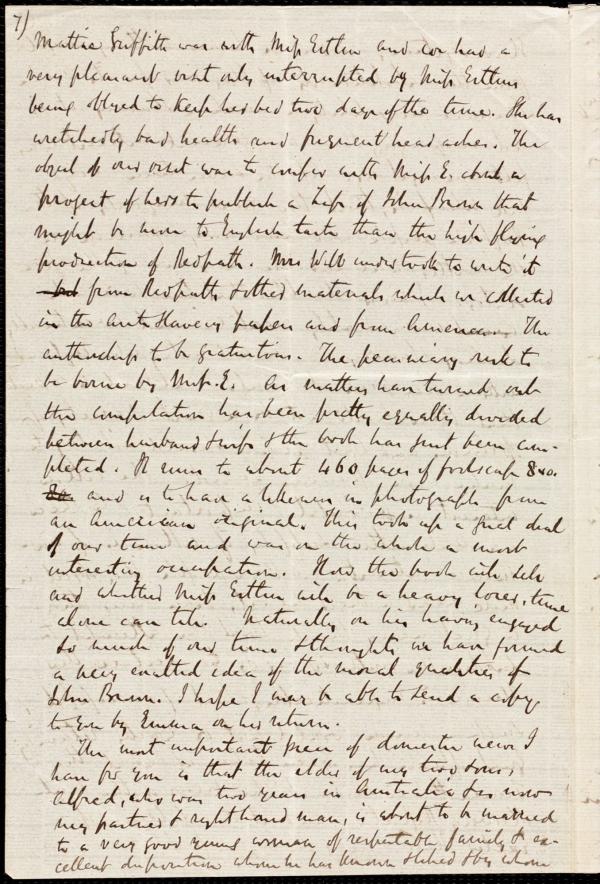 7)
Mattie Griffith was with Miss Estlin and we had a
very pleasant visit only interrupted by Miss Estlins
being obliged to keep her bed two days of the time. She has
wretchedly bad health and frequent head aches. The
object of our visit was to confer with Miss E. about a
project of hers to publish a Life of John Brown that
might be more to English taste than the high flying
production of Redpath. Mrs Webb undertook to write it
from Redpath & other materials which we collected
in the anti slavery papers and from America. The
authorship to be gratuitous. The pecuniary risk to
be borne by Miss. E. As matters have turned out
the compilation has been pretty equally divided
between husband & wife & the book has just been com-
pleted. It runs to about 460 pages of foolscap 8vo.
and is to have a likeness in photograph from
an American original. This took up a great deal
of our time and was on the whole a most
interesting occupation. How the book will sell
and whether Miss Estlin will be a heavy loser, time
alone can tell. Naturally on his having engaged
so much of our time & thoughts we have formed
a very exalted idea of the moral qualities of
John Brown. I hope I may be able to send a copy
to you by Emma on her return.
The most important piece of domestic news I
have for you is that the elder of my two sons,
Alfred, who was two years in Australia & is now
my partner & right hand man, is about to be married
to a very good young woman of respectable family & ex-
cellent disposition whom he has known & liked & by whom